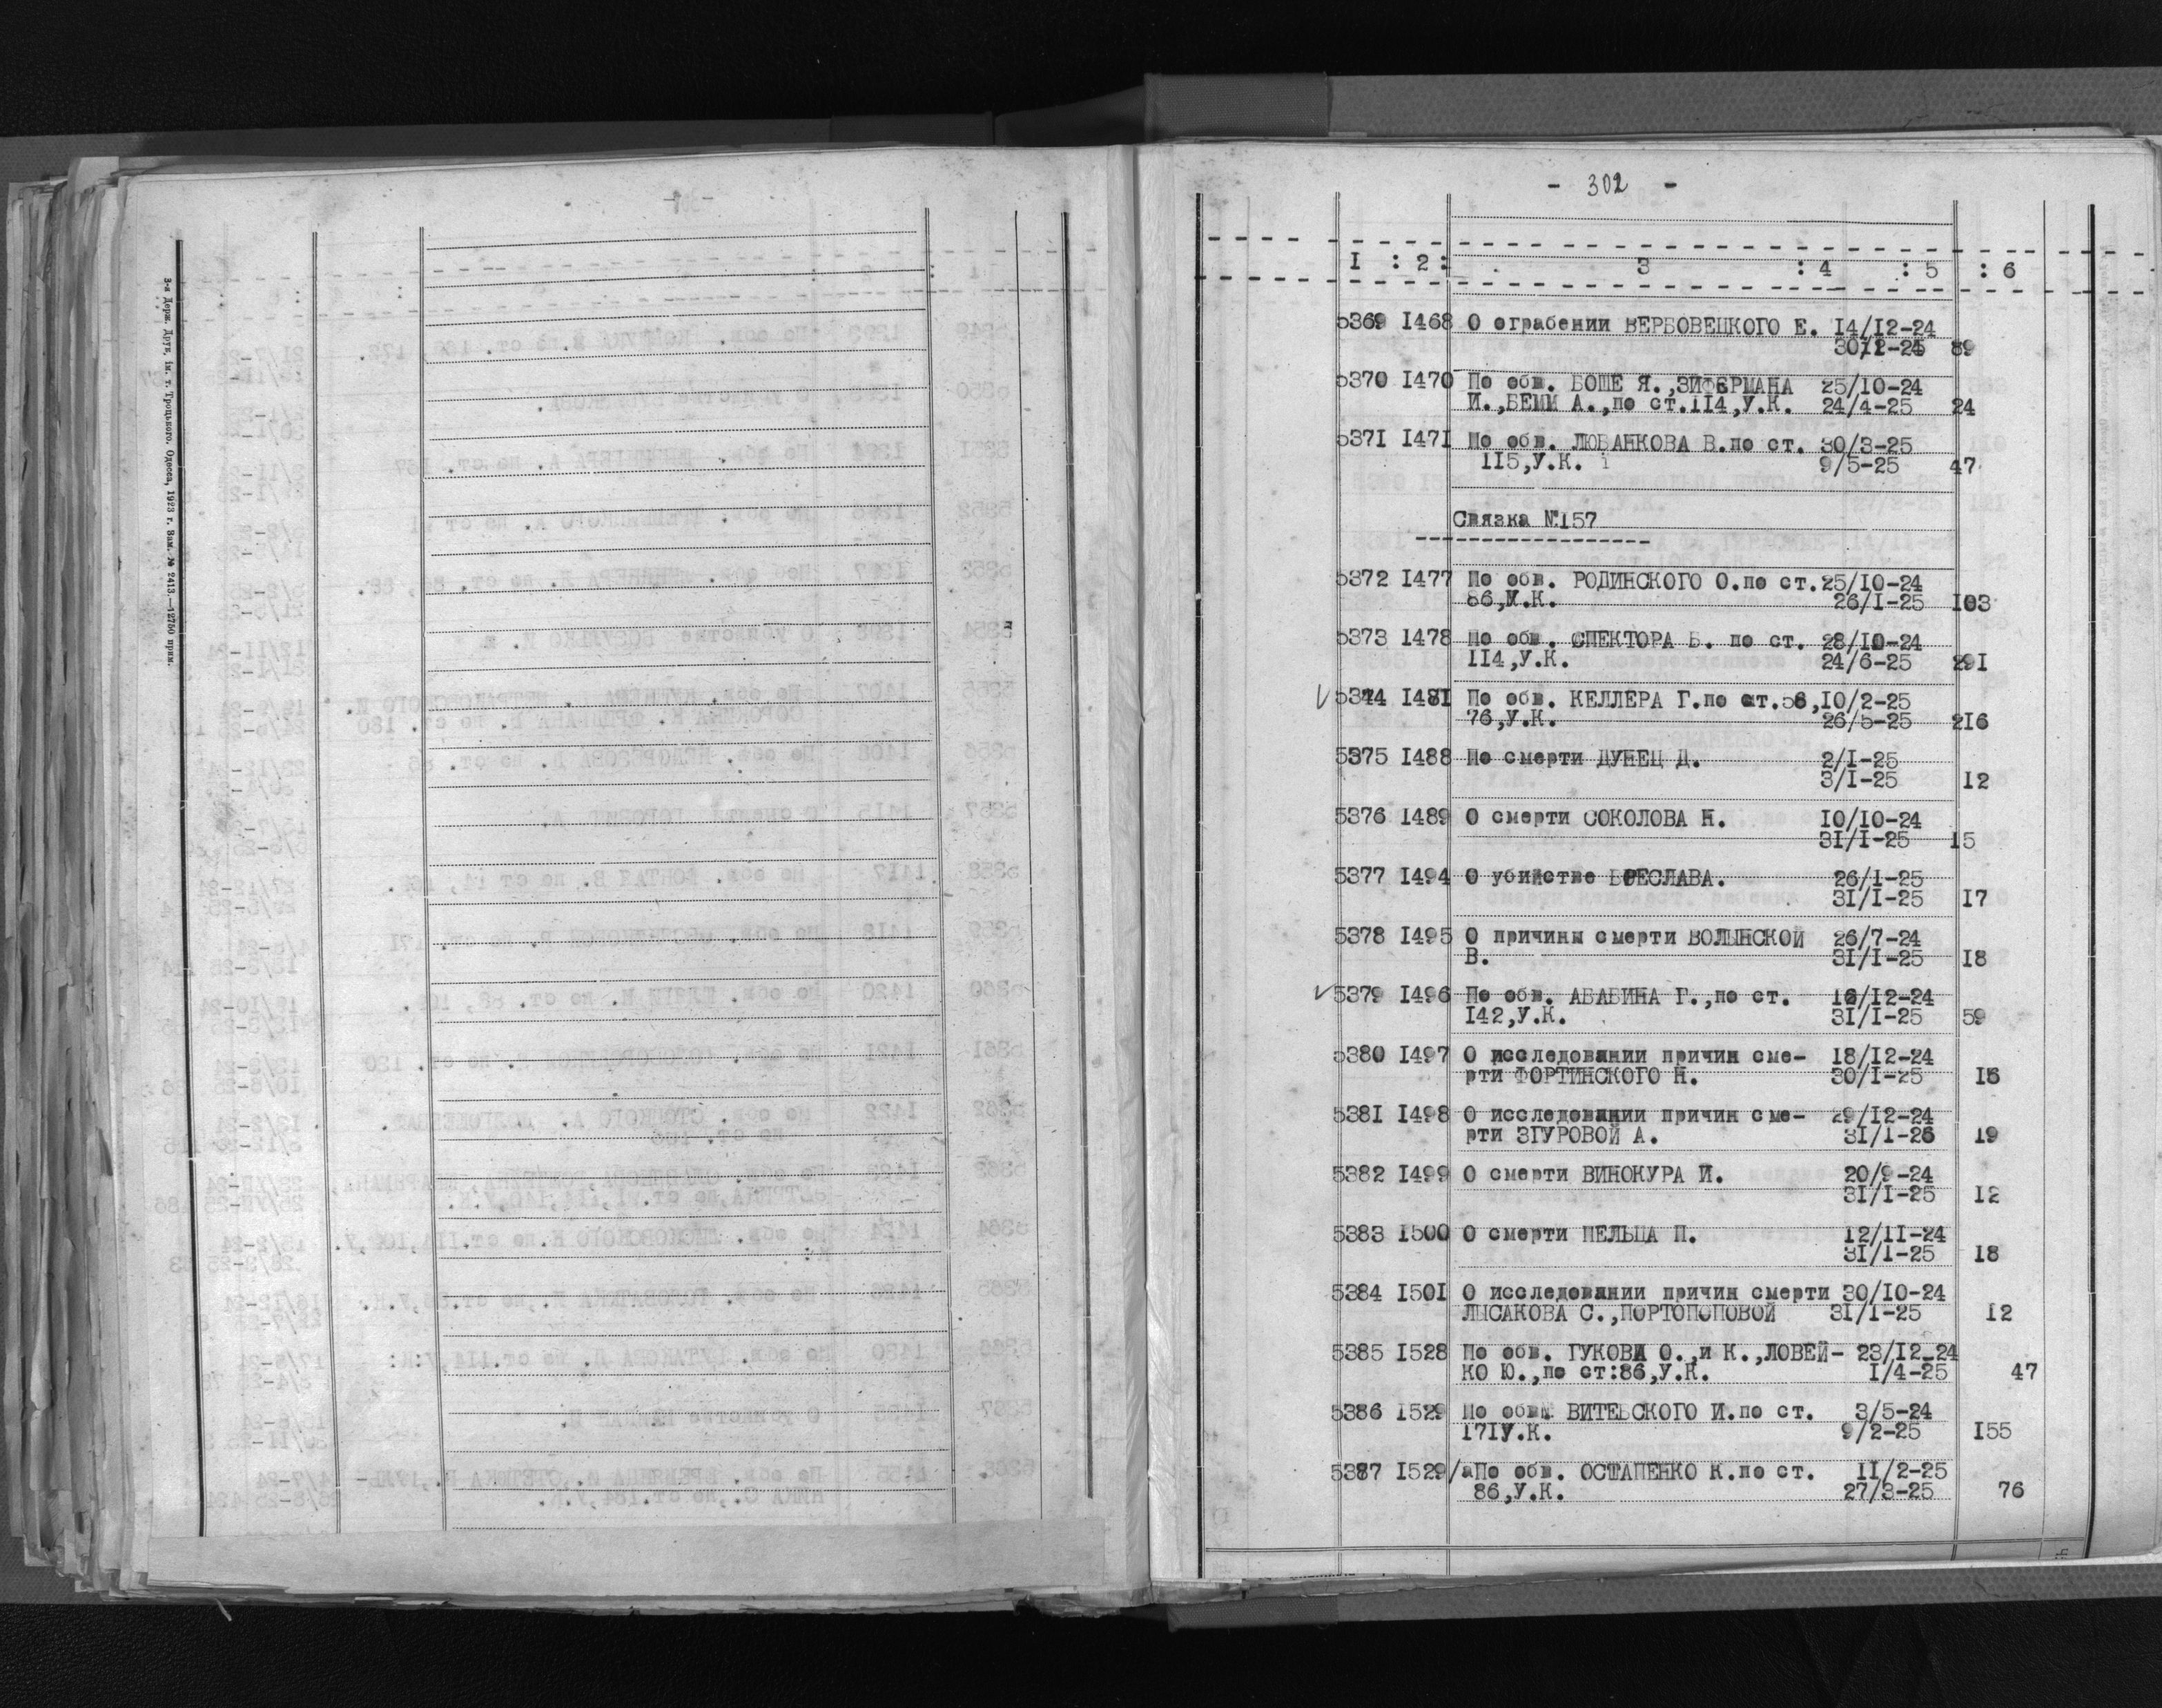 3-я Держ. Друк. ім. т. Троцького. Одесса, 1923 г. Зам. № 2413.—12750 прим.
- 302 -
I : 2 : 3 : 4 : 5 : 6
5369 I468 О ограбении ВЕРБОВЕЦКОГО Е. I4/I2-24
89
5370 I470 По обв. БОШЕ Я.,ЗИФЕРМАНА 25/I0-24
И.,БЕММ А.,по ст.II4,У.К. 24/4-25 24
5371 I47I По обв. ЛЮБАНКОВА В.по ст. 30/3-25
II5,У.К. 9/5-25 47
Связка №I57
5372 I477 По обв. РОДИНСКОГО О.по ст.25/I0-24
86,У.К. 26/I-25 I03
5373 I478 По обв. СПЕКТОРА Б. по ст. 28/I0-24
II4,У.К. 24/6-25 29I
5344 I48I По обв. КЕЛЛЕРА Г.по ст.56,I0/2-25
76,У.К. 26/5-25 2I6
5375 I488 По смерти ДУНЕЦ Д. 2/I-25
3/I-25 I2
5376 I489 О смерти СОКОЛОВА Н. I0/I0-24
3I/I-25 I5
5377 I494 О убийстве БРЕСЛАВА. 26/I-25
3I/I-25 I7
5378 I495 О причины смерти ВОЛЫНСКОЙ 26/7-24
В. 3I/I-25 I8
5379 I496 По обв. АБАБИНА Г.,по ст. I6/I2-24
I42,У.К. 3I/I-25 59
5380 I497 О исследовании причин сме- I8/I2-24
рти ФОРТИНСКОГО Н. 30/I-25 I6
538I I498 О исследовании причин сме- 29/I2-24
рти ЗГУРОВОЙ А. 3I/I-26 I9
5382 I499 О смерти ВИНОКУРА И. 20/9-24
3I/I-25 I2
5383 I500 О смерти ПЕЛЬЦА П. I2/II-24
3I/I-25 I8
5384 I50I О исследовании причин смерти 30/I0-24
ЛЫСАКОВА С.,ПОРТОПОПОВОЙ 3I/I-25 I2
5385 I528 По обв. ГУКОВА О.,и К.,ЛОВЕЙ- 23/I2-24
КО Ю.,по ст:86,У.К. I/4-25 47
5386 I529 По обв. ВИТЕБСКОГО И.по ст. 3/5-24
I7IУ.К. 9/2-25 I55
5387 I529/аПо обв. ОСТАПЕНКО К.по ст. II/2-25
86,У.К. 27/3-25 76